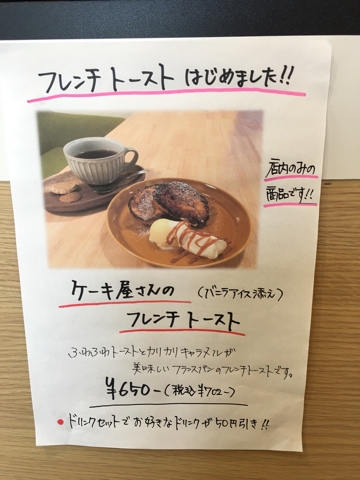 フレンチトーストはじめました!!
店内のみの
商品です!!
ケーキ屋さんの (バニラアイス添え)
フレンチトースト
ふわふわトーストとカリカリキャラメルが
美味しいフランスパンのフレンチトーストです。
¥650-(税込¥702-)
• ドリンクセットでお好きなドリンクが50円引き!!